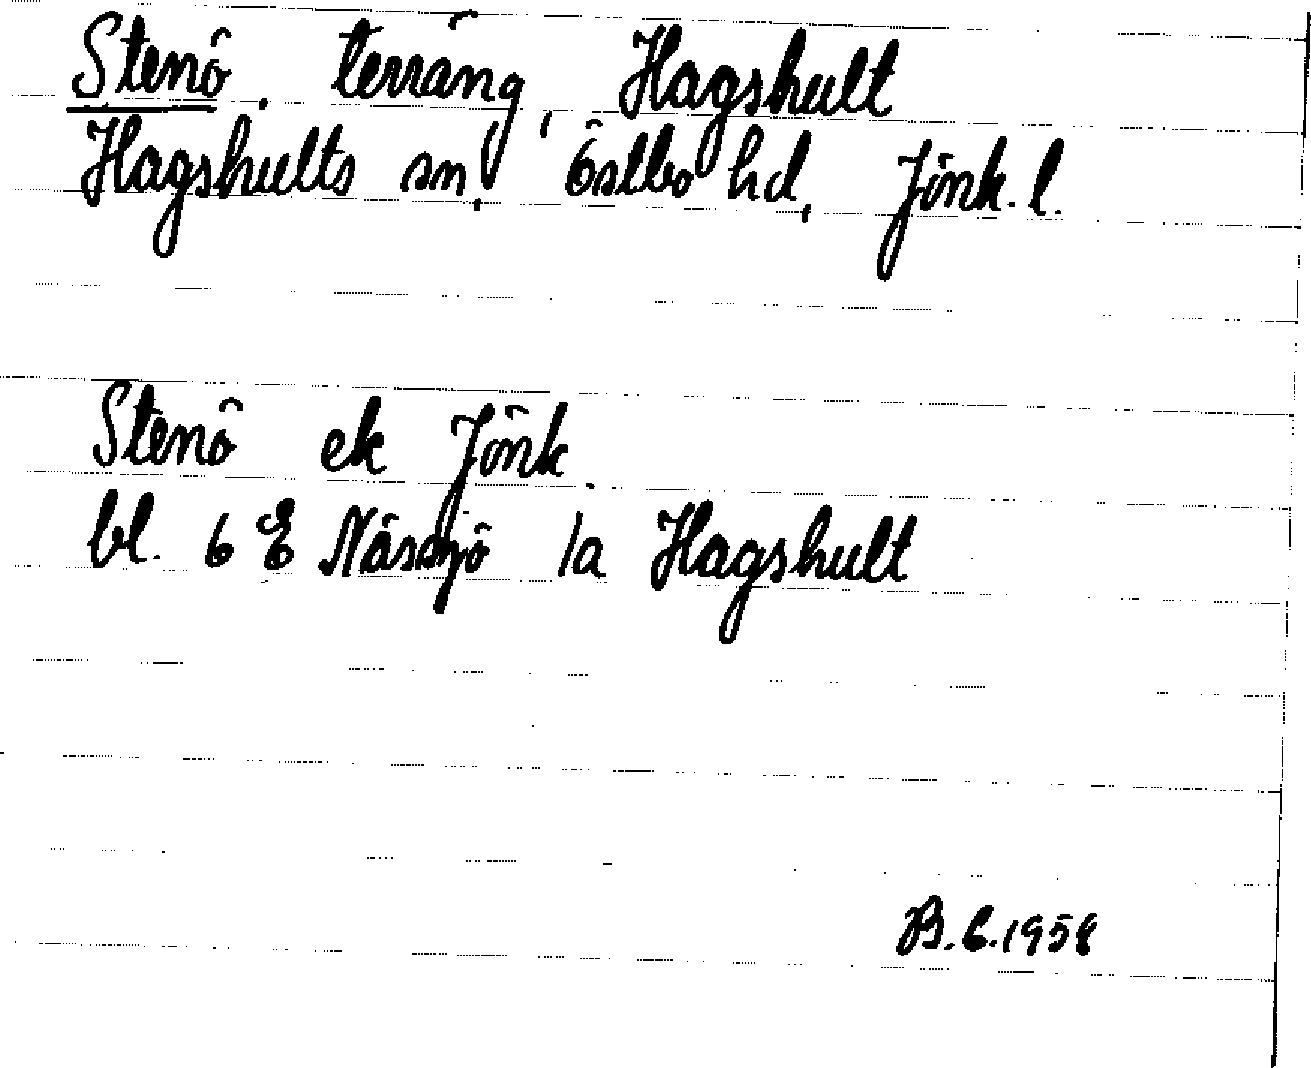 Stenö, terräng, Hagshult
Hagshults sn, Östbo hd, Jönk. l.
Stenö ek Jönk.
bl. 6 E Nässjö 1a Hagshult
B.E. 1958